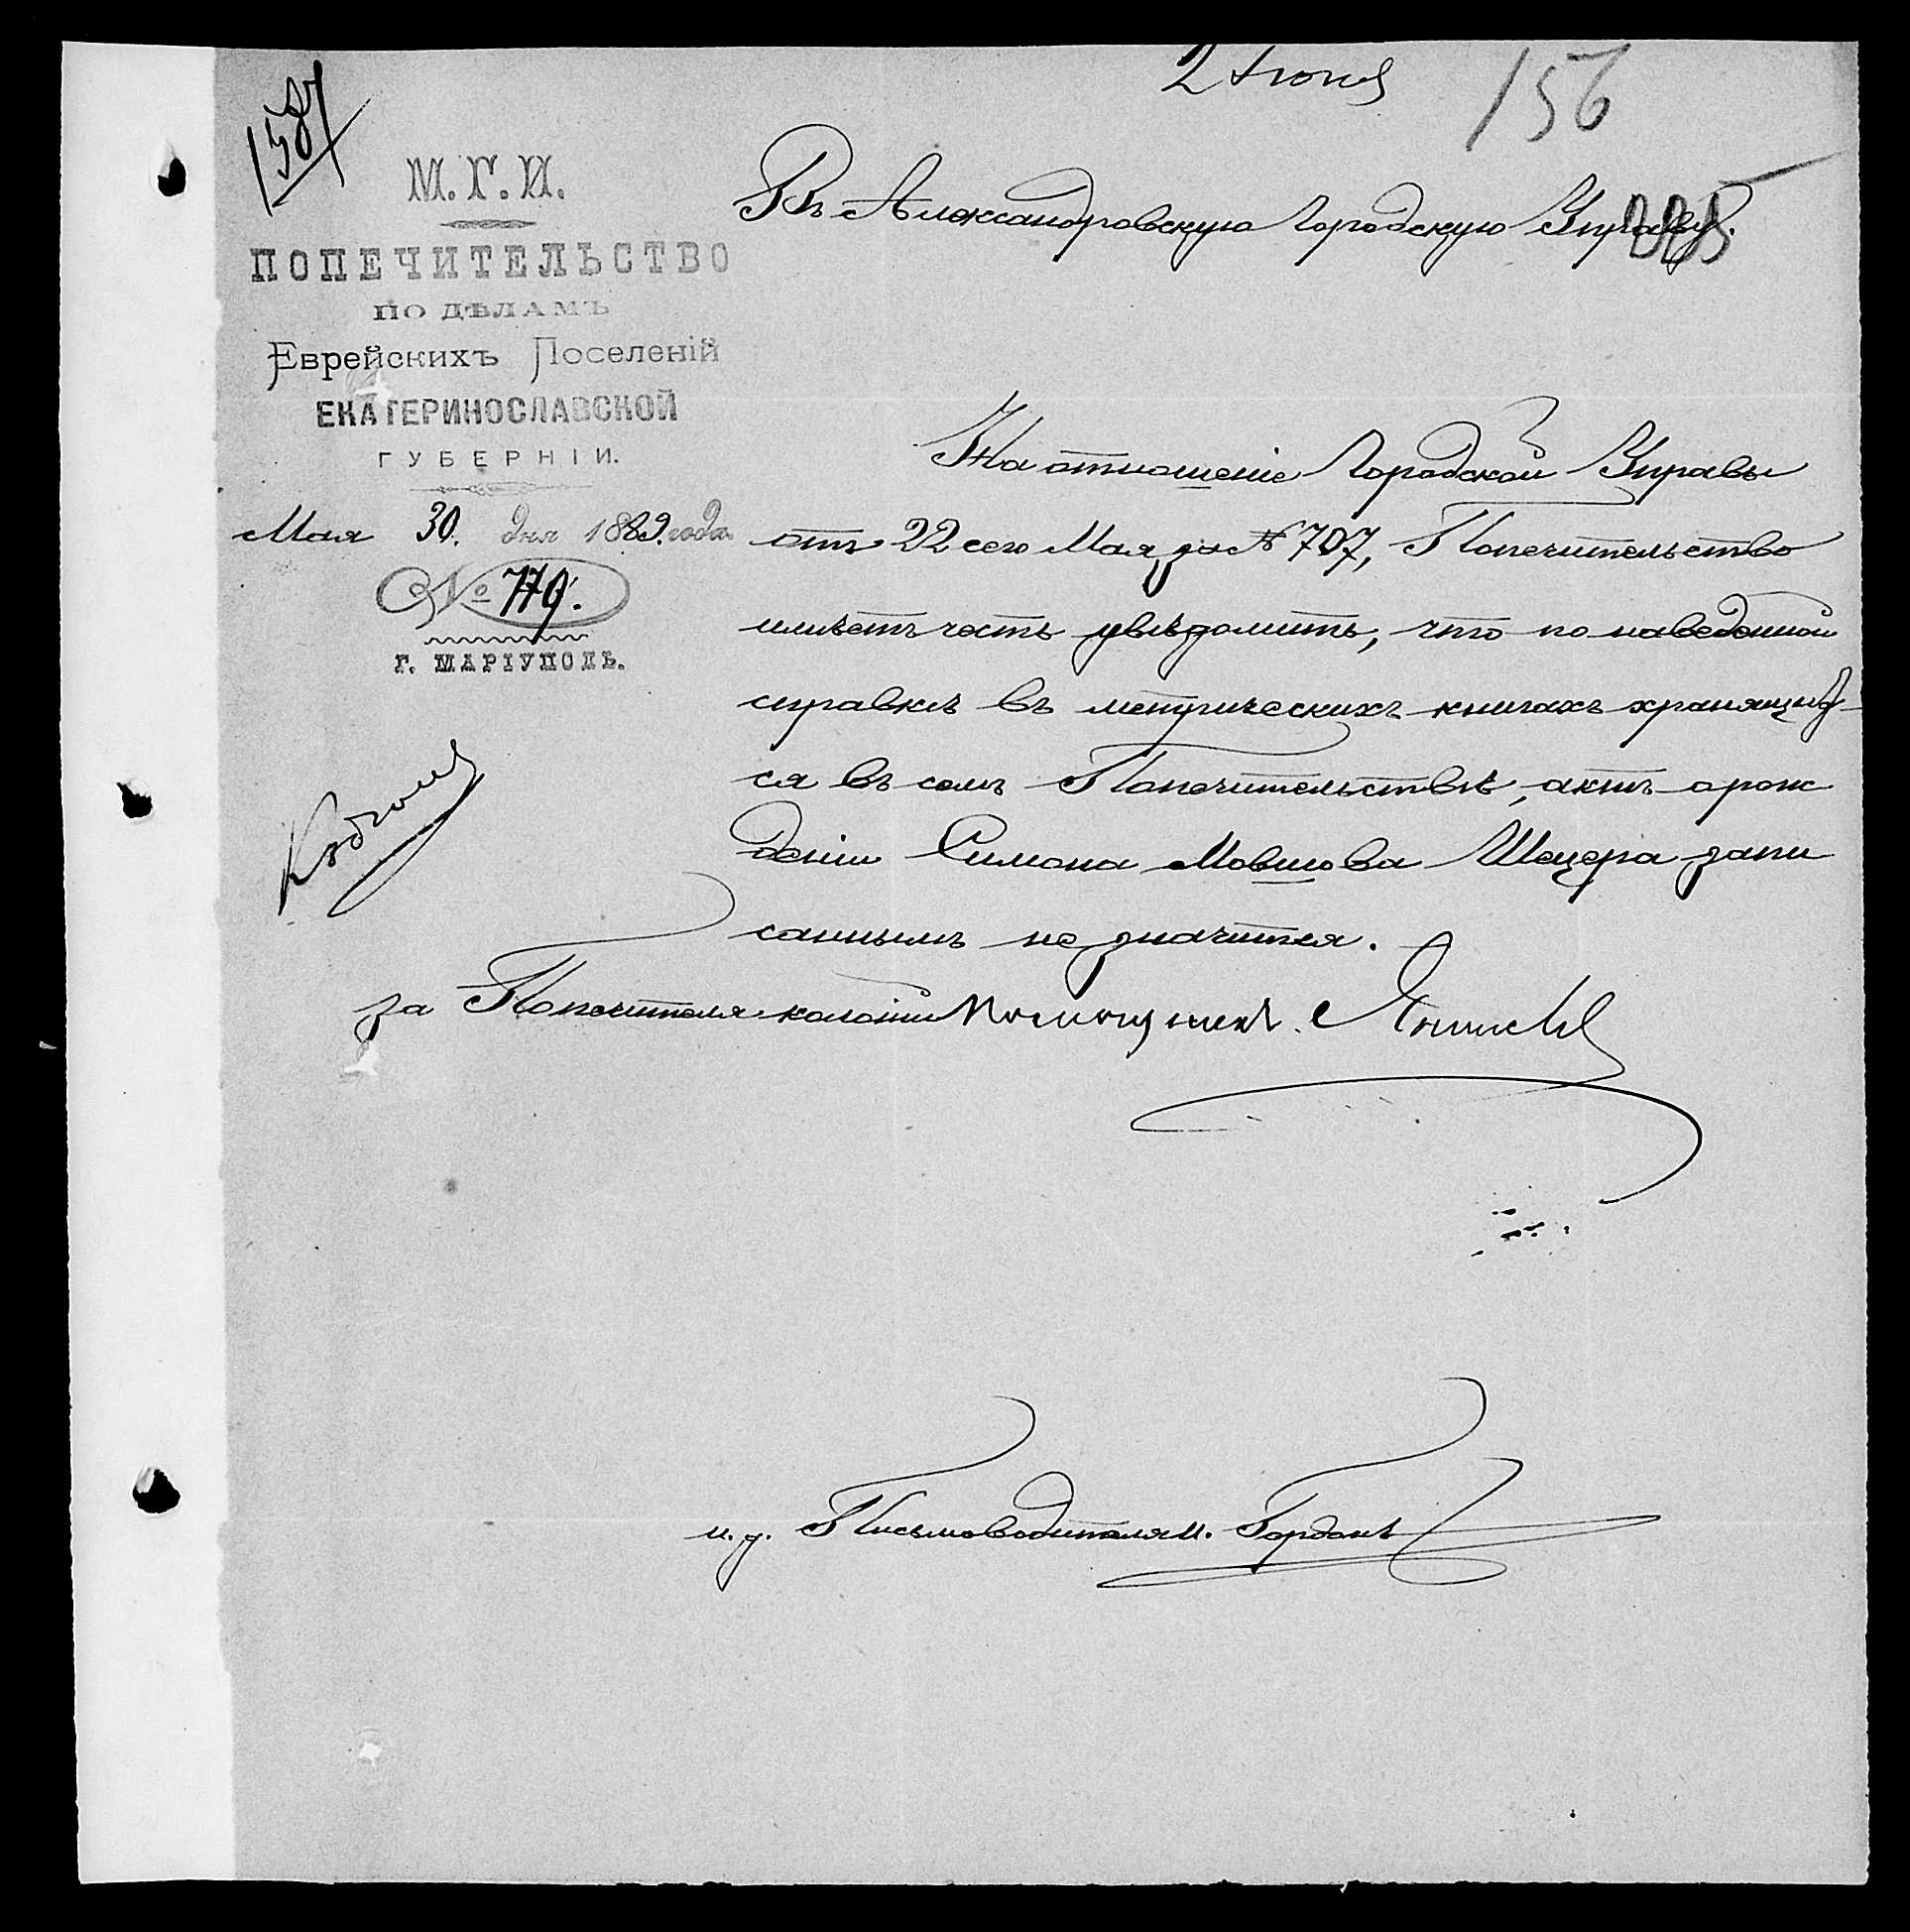 2 Июня
156
1587
М.Г.И.
ПОПЕЧИТЕЛЬСТВО
ПО ДѢЛАМЪ
Еврейскихъ Поселеній
ЕКАТЕРИНОСЛАВСКОЙ
ГУБЕРНІИ.
Мая 30. дня 1889. года
№ 779.
Г. МАРІУПОЛЬ.
Въ Александровскую Городскую Управу.
На отношеніе Городской Управы
отъ 22 сего Мая, за № 707, Попечительство
имѣетъ честь увѣдомить, что по наведенной
справкѣ въ метрическихъ книгахъ хранящих-
ся въ семъ Попечительствѣ, актъ о рож
деніи Симона Мовшова Шецера запи
саннымъ не значится.
за Попечителя колоніи Помощникъ
и. д. Письмоводителя М. Гордонъ